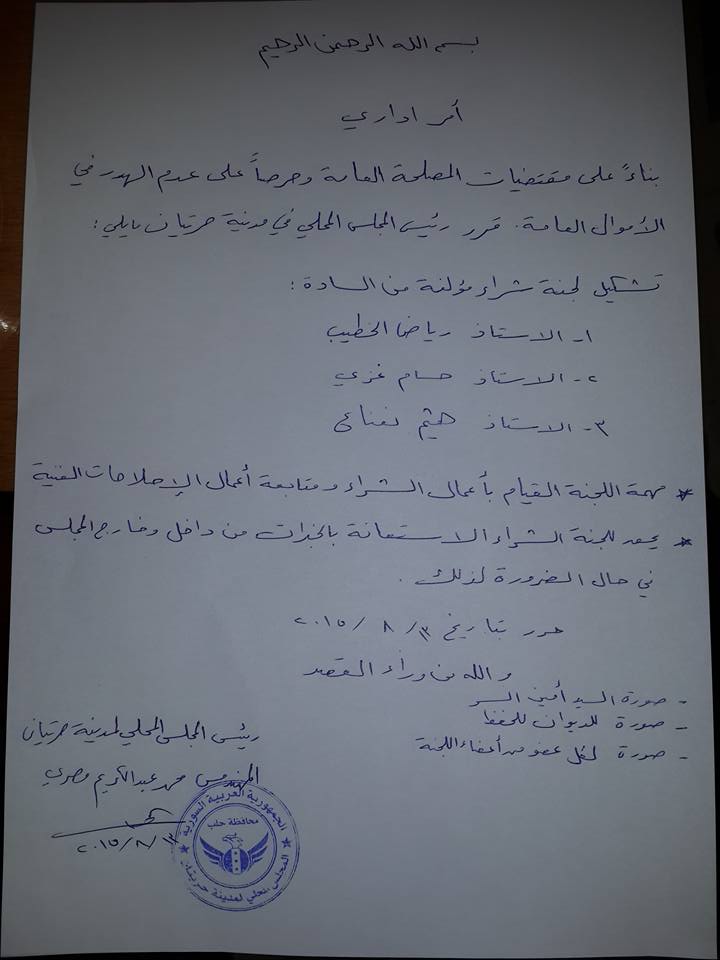 بسم الله الرحمن الرحيم
أمر اداري
بناءً على مقتضيات المصلحة العامة وحرصاً على عدم الهدر في
الأموال العامة. قرر رئيس المجلس المحلي في مدينة حريتان مايلي :
تشكيل لجنة شراء مؤلفة من السادة :
١- الاستاذ رياض الخطيب
٢- الاستاذ حسام غزي
٣- الاستاذ هيثم
* مهمة اللجنة القيام بأعمال الشراء ومتابعة أعمال الإصلاحات الفنية
* يحق للجنة الشراء الاستعانة بالخبرات من داخل وخارج المجلس
في حال الضرورة لذلك .
حرر بتاريخ ١٣ / ٨ / ٢٠١٥
والله من وراء القصد
- صورة السيد أمين السر
- صورة للديوان للحفظ
- صورة لكل عضو من أعضاء اللجنة
رئيس المجلس المحلي لمدينة حريتان
المهندس محمد عبدالكريم مصري
٢٠١٥/٨/١٣
الجمهورية العربية السورية
محافظة حلب
المجلس المحلي لمدينة حريتان